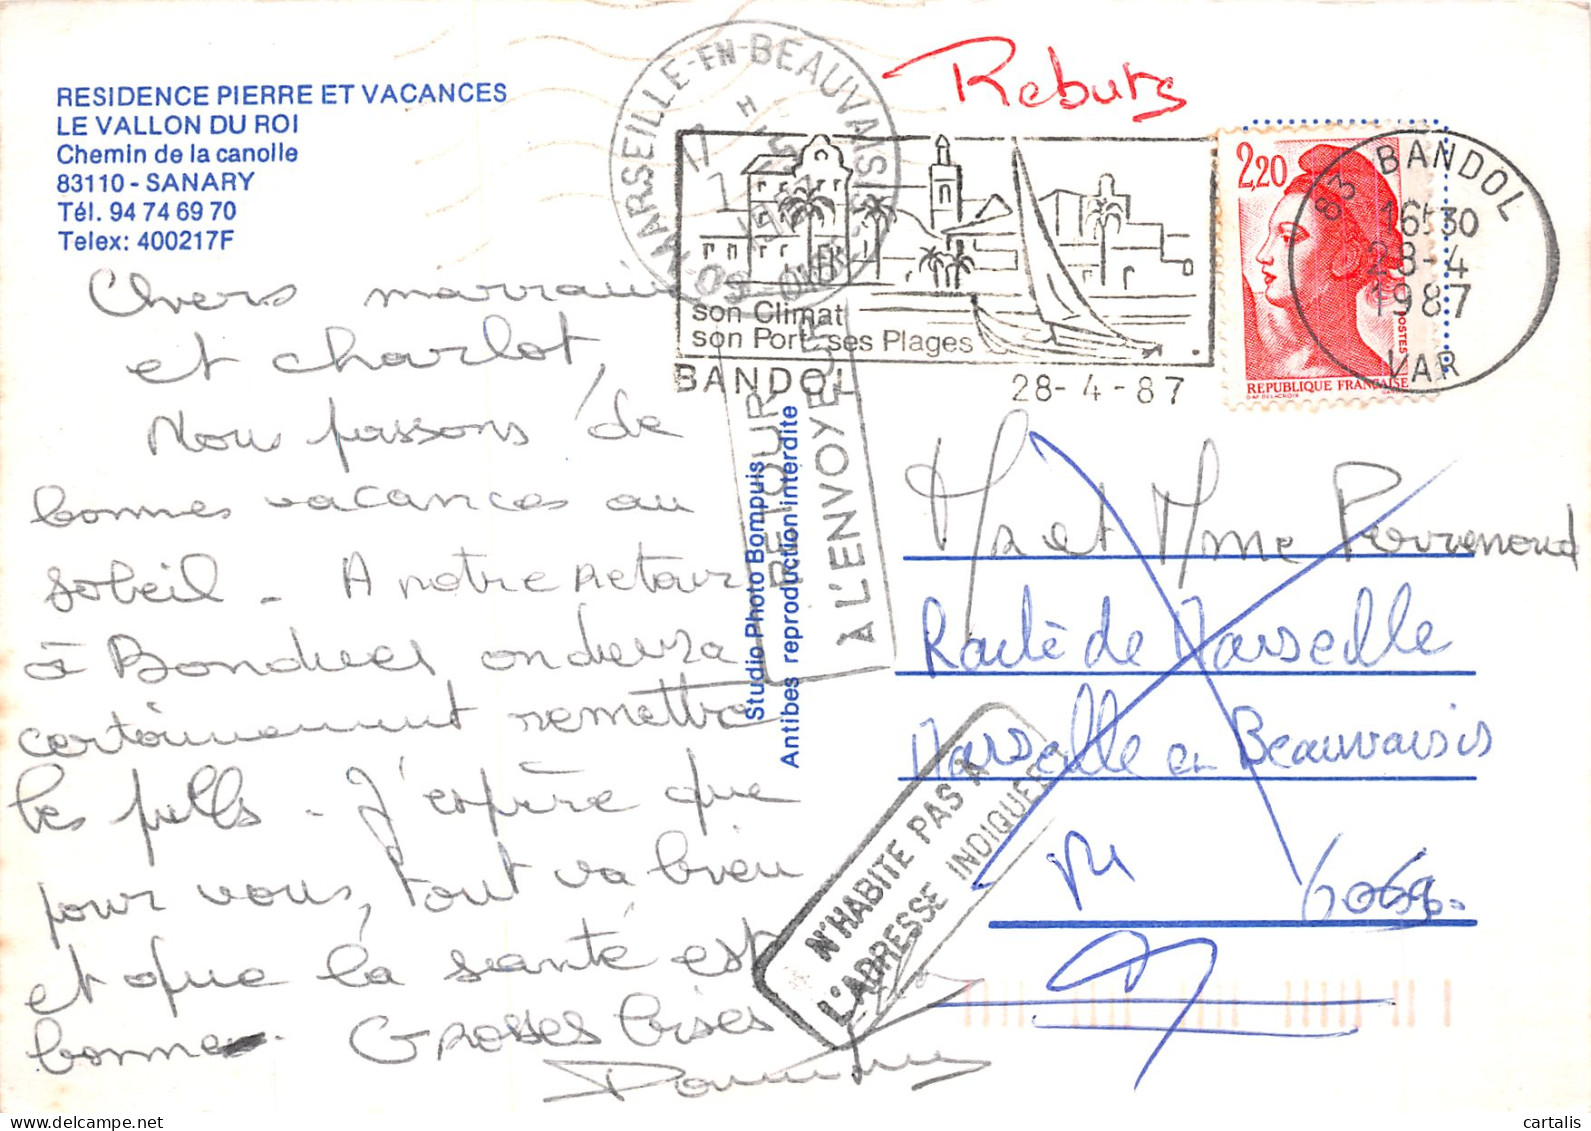 RESIDENCE PIERRE ET VACANCES
LE VALLON DU ROI
Chemin de la canolle
83110 - SANARY
Tél. 94 74 69 70
Telex: 400217F
Chers marraine
et charlot,
Nous passons de
bonnes vacances au
soleil - A notre retour
à on devra
certainement remettre
les pulls - J'espère que
pour vous, tout va bien
et que la santé est
bonne. Grosses bises
Studio Photo Bompuis
Antibes reproduction interdite
MARSEILLE-EN-BEAUVAISIS
OISE
17 H
son Climat
son Port ses Plages
BANDOL
28-4-87
Rebuts
2,20
POSTES
REPUBLIQUE FRANÇAISE
83 BANDOL
16H30
28-4
1987
VAR
RETOUR
A L'ENVOYEUR
N'HABITE PAS A
L'ADRESSE INDIQUEE
Mr et Mme Perrenoud
Route de Marseille
Marseille en Beauvaisis
cartalis